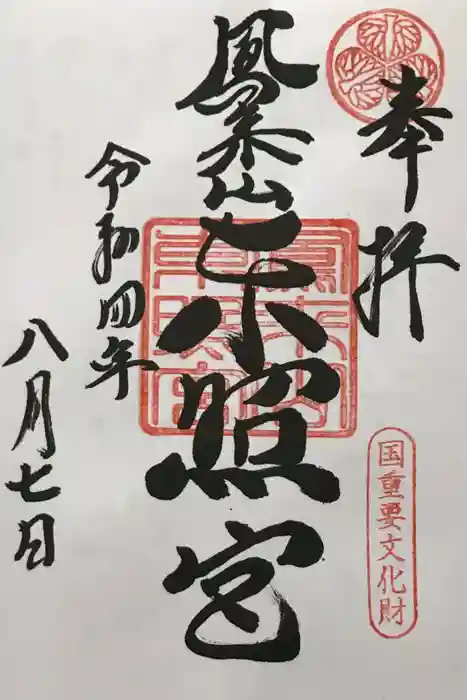 奉拝
国重要文化財
鳳来山東照宮
令和四年
八月七日